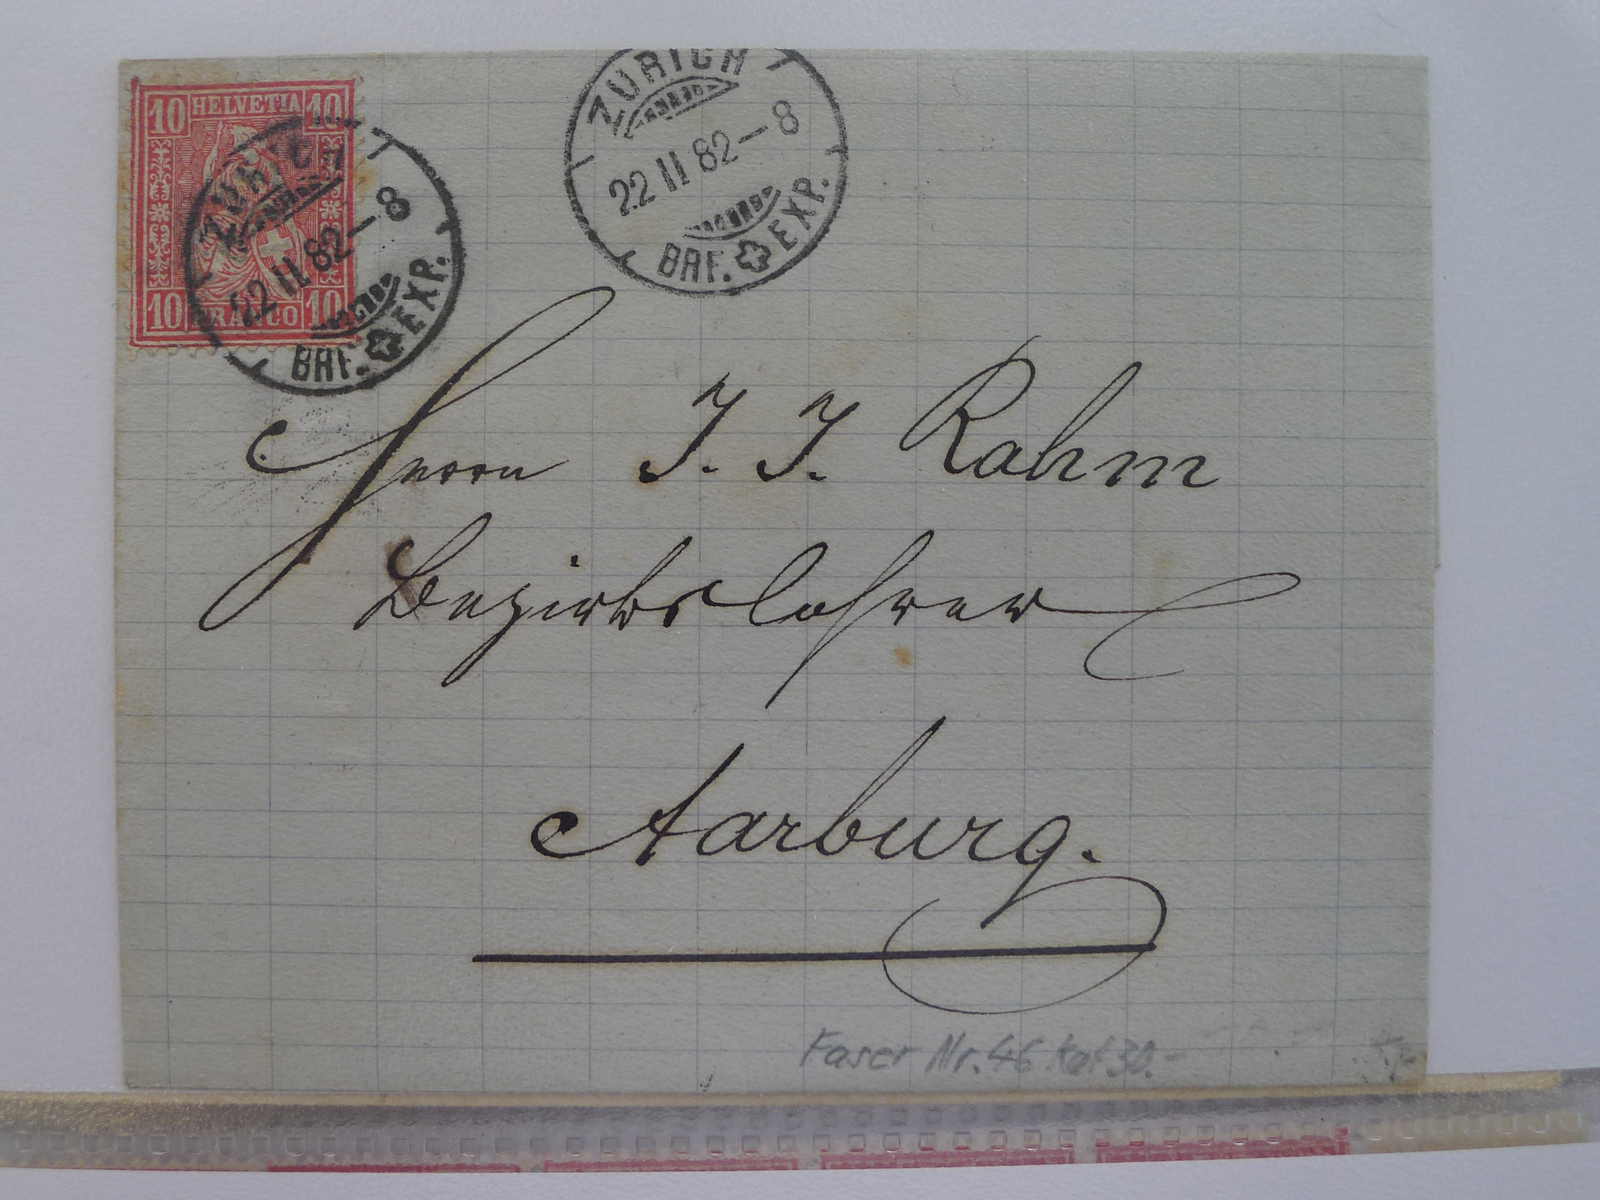 10 HELVETIA 10
10 FRANCO 10
ZÜRICH
22 II 82-8
BRF. EXP.
ZÜRICH
22 II 82-8
BRF. EXP.
Herrn J. J. Rahm
Bezirkslehrer
Aarburg.
Faser Nr. 46 Kat 30.-